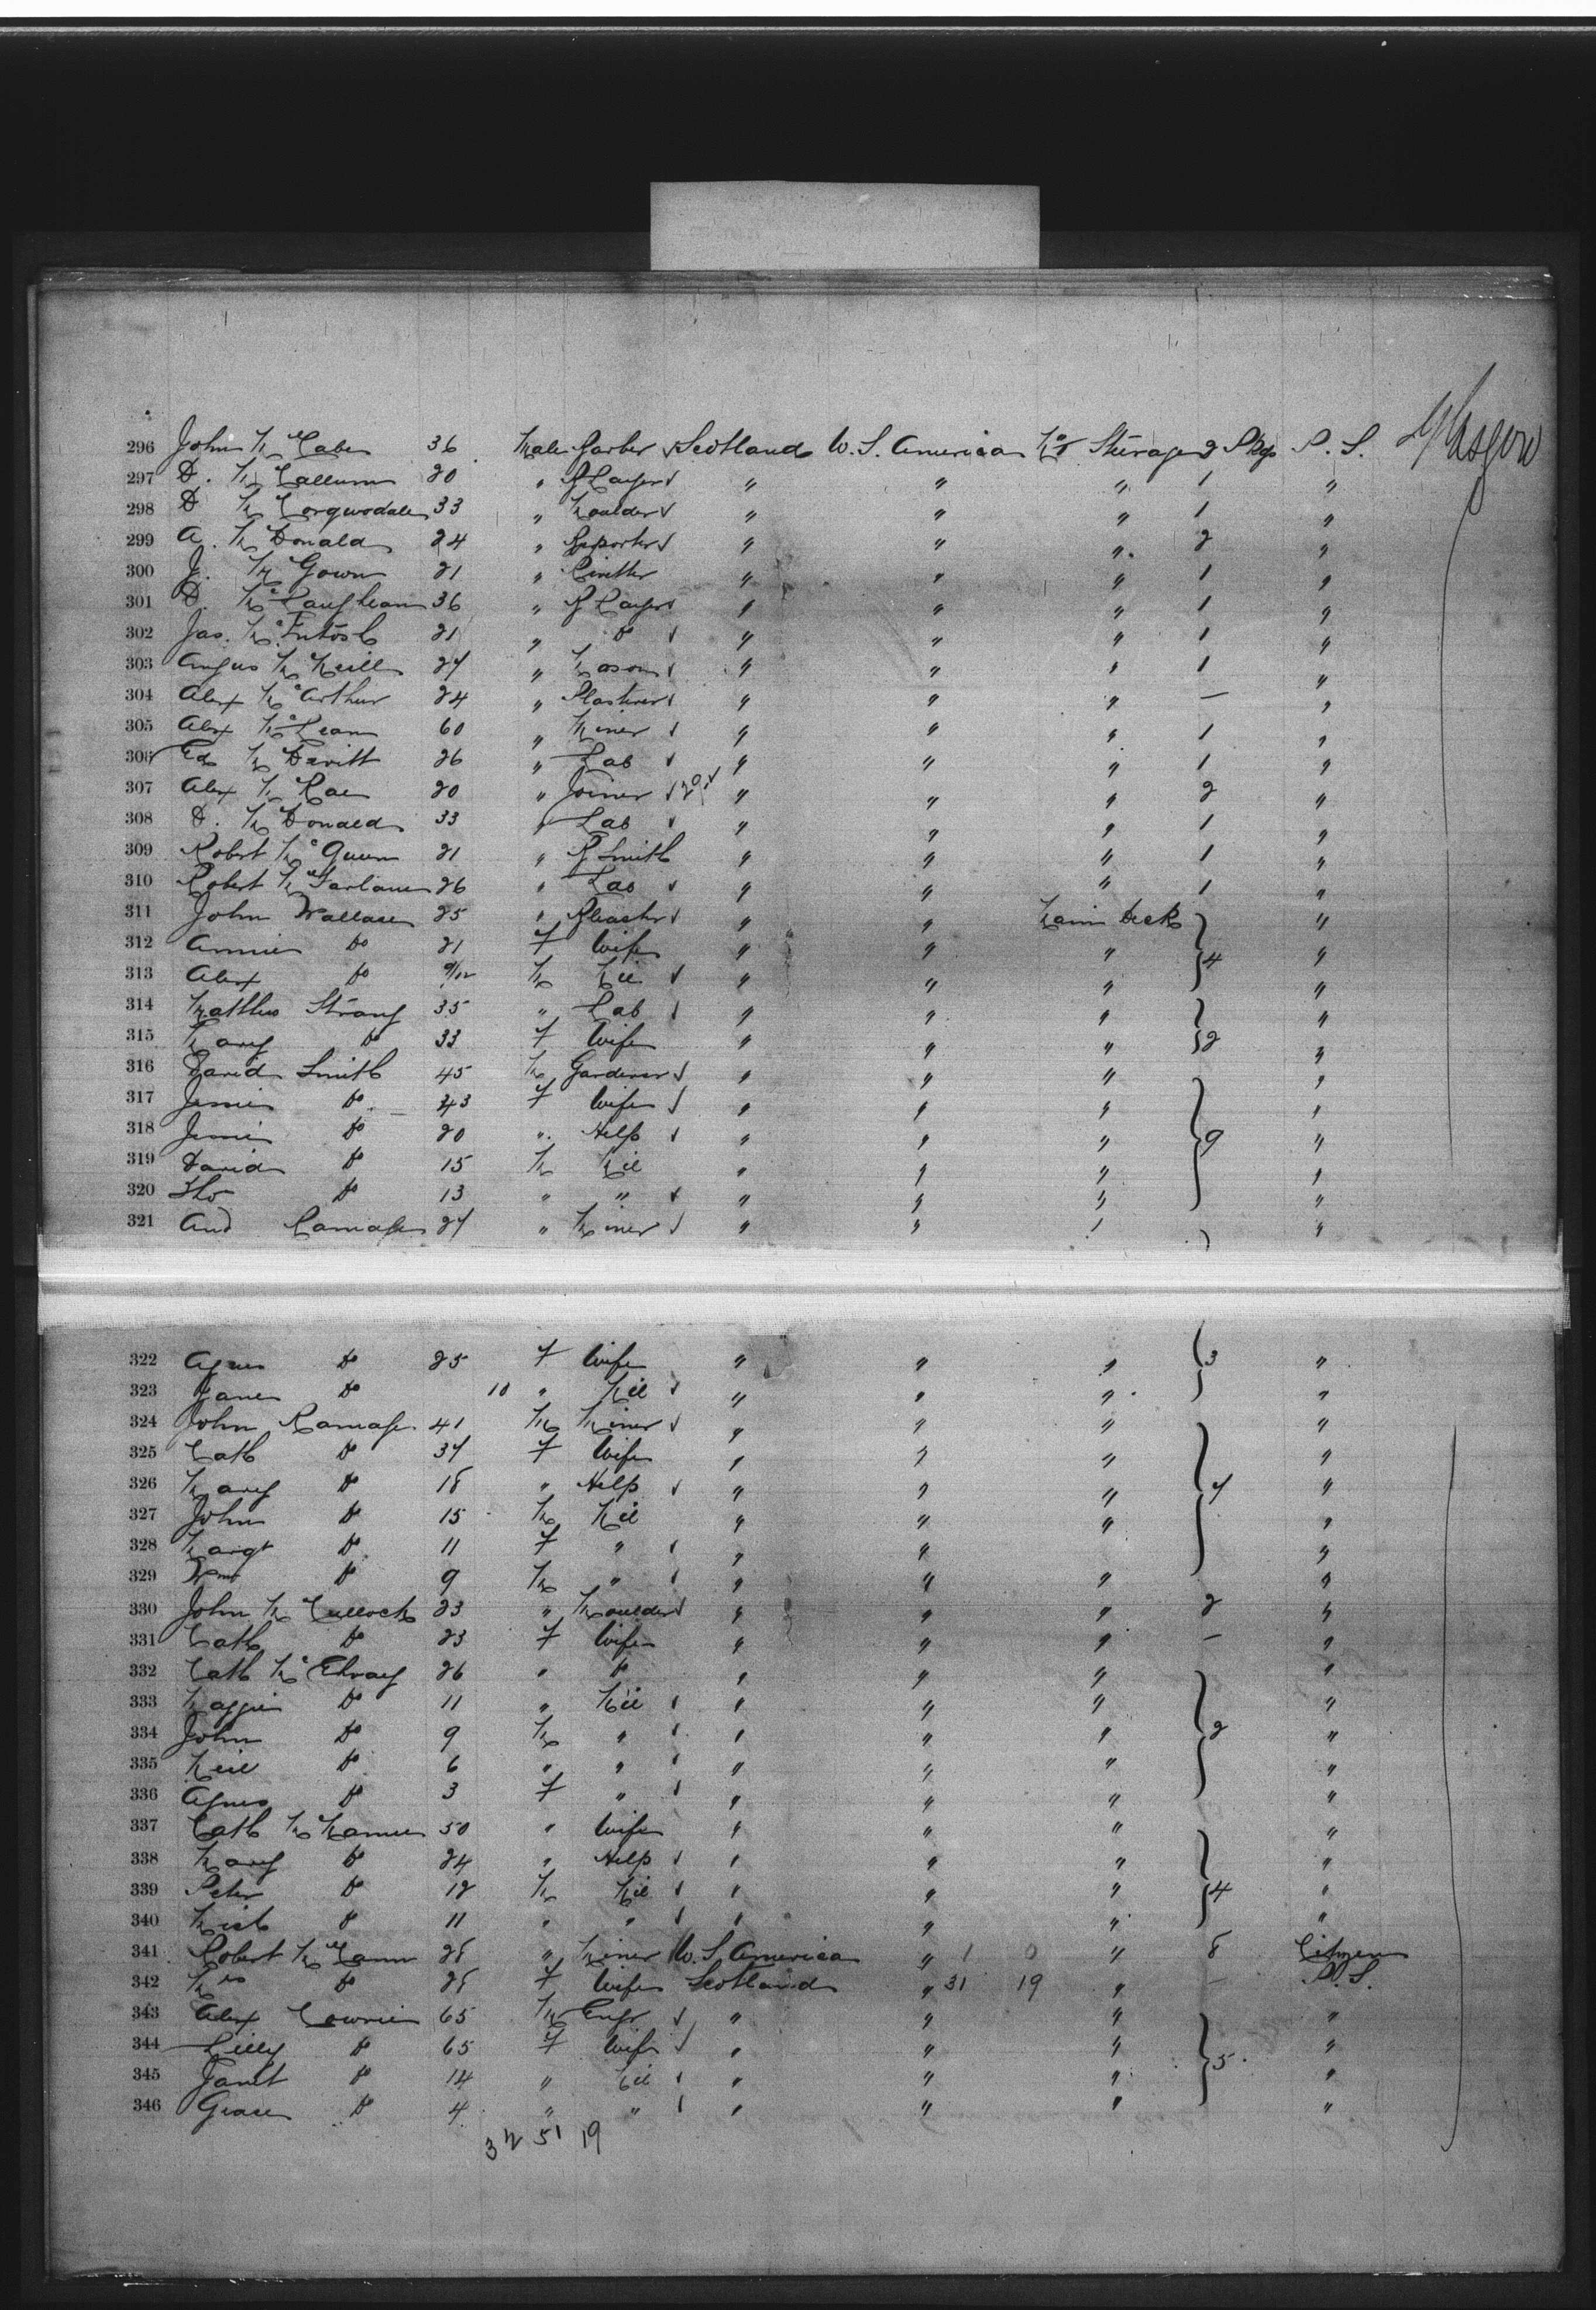 Glasgow
296 John McCabe 36 Male Barber Scotland U.S. America Steerage 2 Pkgs P.S.
297 D. McCallum 20 " B Layer " " " 1 "
298 D McCorquodale 33 " Moulder " " " 1 "
299 A. McDonald 24 " Reporter " " " 2 "
300 J. McGown 21 " " " " 1 "
301 D. McLauchlan 36 " B Layer " " " 1 "
302 Jas. McIntosh 21 " Do " " " 1 "
303 Angus McNeill 27 " Mason " " " 1 "
304 Alex McArthur 24 " Plasterer " " " — "
305 Alex McLean 60 " Miner " " " 1 "
306 Ed McDevitt 26 " Lab " " " 1 "
307 Alex McRae 20 " Joiner " " " 2 "
308 D. McDonald 33 " Lab " " " 1 "
309 Robert McQueen 21 " B Smith " " " 1 "
310 Robert McFarlane 26 " Lab " " " 1 "
311 John Wallace 25 " Bleacher " " Main Deck "
312 Annie Do 21 F Wife " " " 4 "
313 Alex Do 9/12 M Nil " " " "
314 Matthew Strang 35 " Lab " " " "
315 Mary Do 33 F Wife " " " 2 "
316 David Smith 45 M Gardener " " " "
317 Jessie Do 43 F Wife " " " "
318 Jessie Do 20 " Help " " " 9 "
319 David Do 15 M Nil " " " "
320 Tho Do 13 " " " " " "
321 And Ramage 27 " Miner " " " "
322 Agnes Do 25 F Wife " " " 3 "
323 Jane Do 10 " Nil " " " "
324 John Ramage 41 M Miner " " " "
325 Cath Do 37 F Wife " " " "
326 Mary Do 18 " Help " " " 7 "
327 John Do 15 M Nil " " " "
328 Margt Do 11 F " " " "
329 Wm Do 9 M " " " " "
330 John McCulloch 23 " Moulder " " " 2 "
331 Cath Do 23 F Wife " " " — "
332 Cath McElvay 26 " Do " " " "
333 Maggie Do 11 " Nil " " " "
334 John Do 9 M " " " " 2 "
335 Neil Do 6 " " " " " "
336 Agnes Do 3 F " " " " "
337 Cath McManus 50 " Wife " " " "
338 Mary Do 24 " Help " " " "
339 Peter Do 12 M Nil " " " 4 "
340 Mich Do 11 " " " " " "
341 Robert McCann 28 " Miner U.S. America " 1 0 " 8 Citizen
342 Mrs Do 28 F Wife Scotland " 31 19 " — P.S.
343 Alex Cowrie 65 M Engr " " " "
344 Lilly Do 65 F Wife " " " "
345 Janet Do 14 " Nil " " " 5 "
346 Grace Do 4 " " " " " "
32 51 19